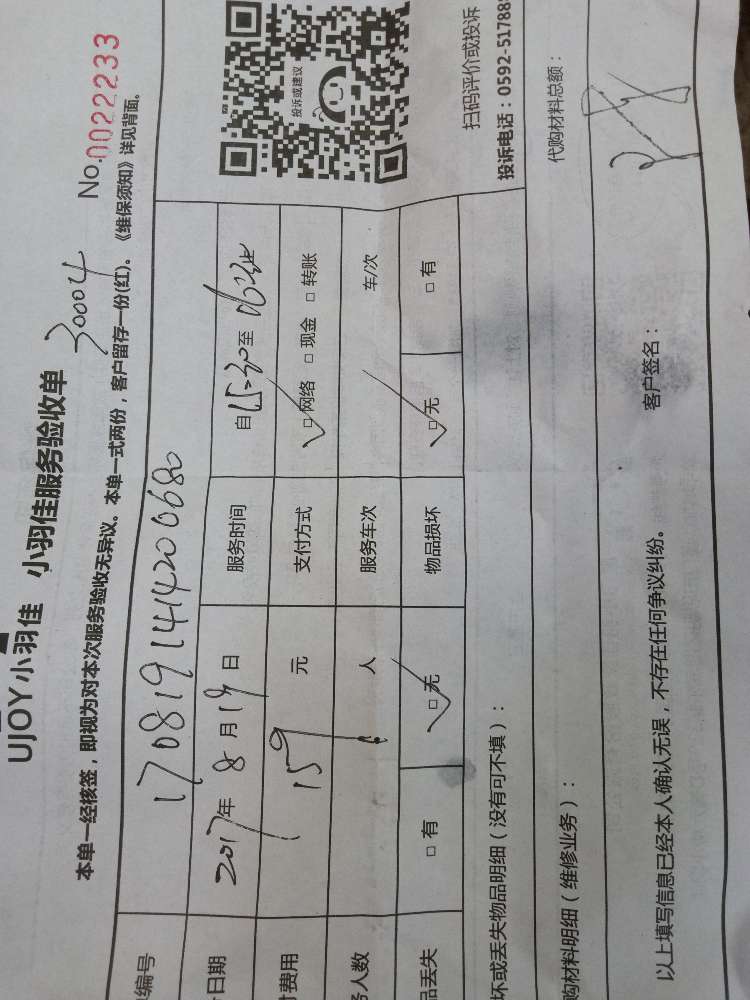 UJOY小羽佳 小羽佳服务验收单
30004
No.0022233
本单一经核签，即视为对本次服务验收无异议。本单一式两份，客户留存一份(红)。《维保须知》详见背面。
编号 1708191414200680
日期 2017年8月19日 服务时间 自15:30至
费用 159元 支付方式 □网络 □现金 □转账
务人数 人 服务车次 车/次
品丢失 □有 □无 物品损坏 □无 □有
投诉或建议
扫码评价或投诉
投诉电话：0592-51788
坏或丢失物品明细（没有可不填）：
购材料明细（维修业务）：
代购材料总额：
以上填写信息已经本人确认无误，不存在任何争议纠纷。 客户签名：